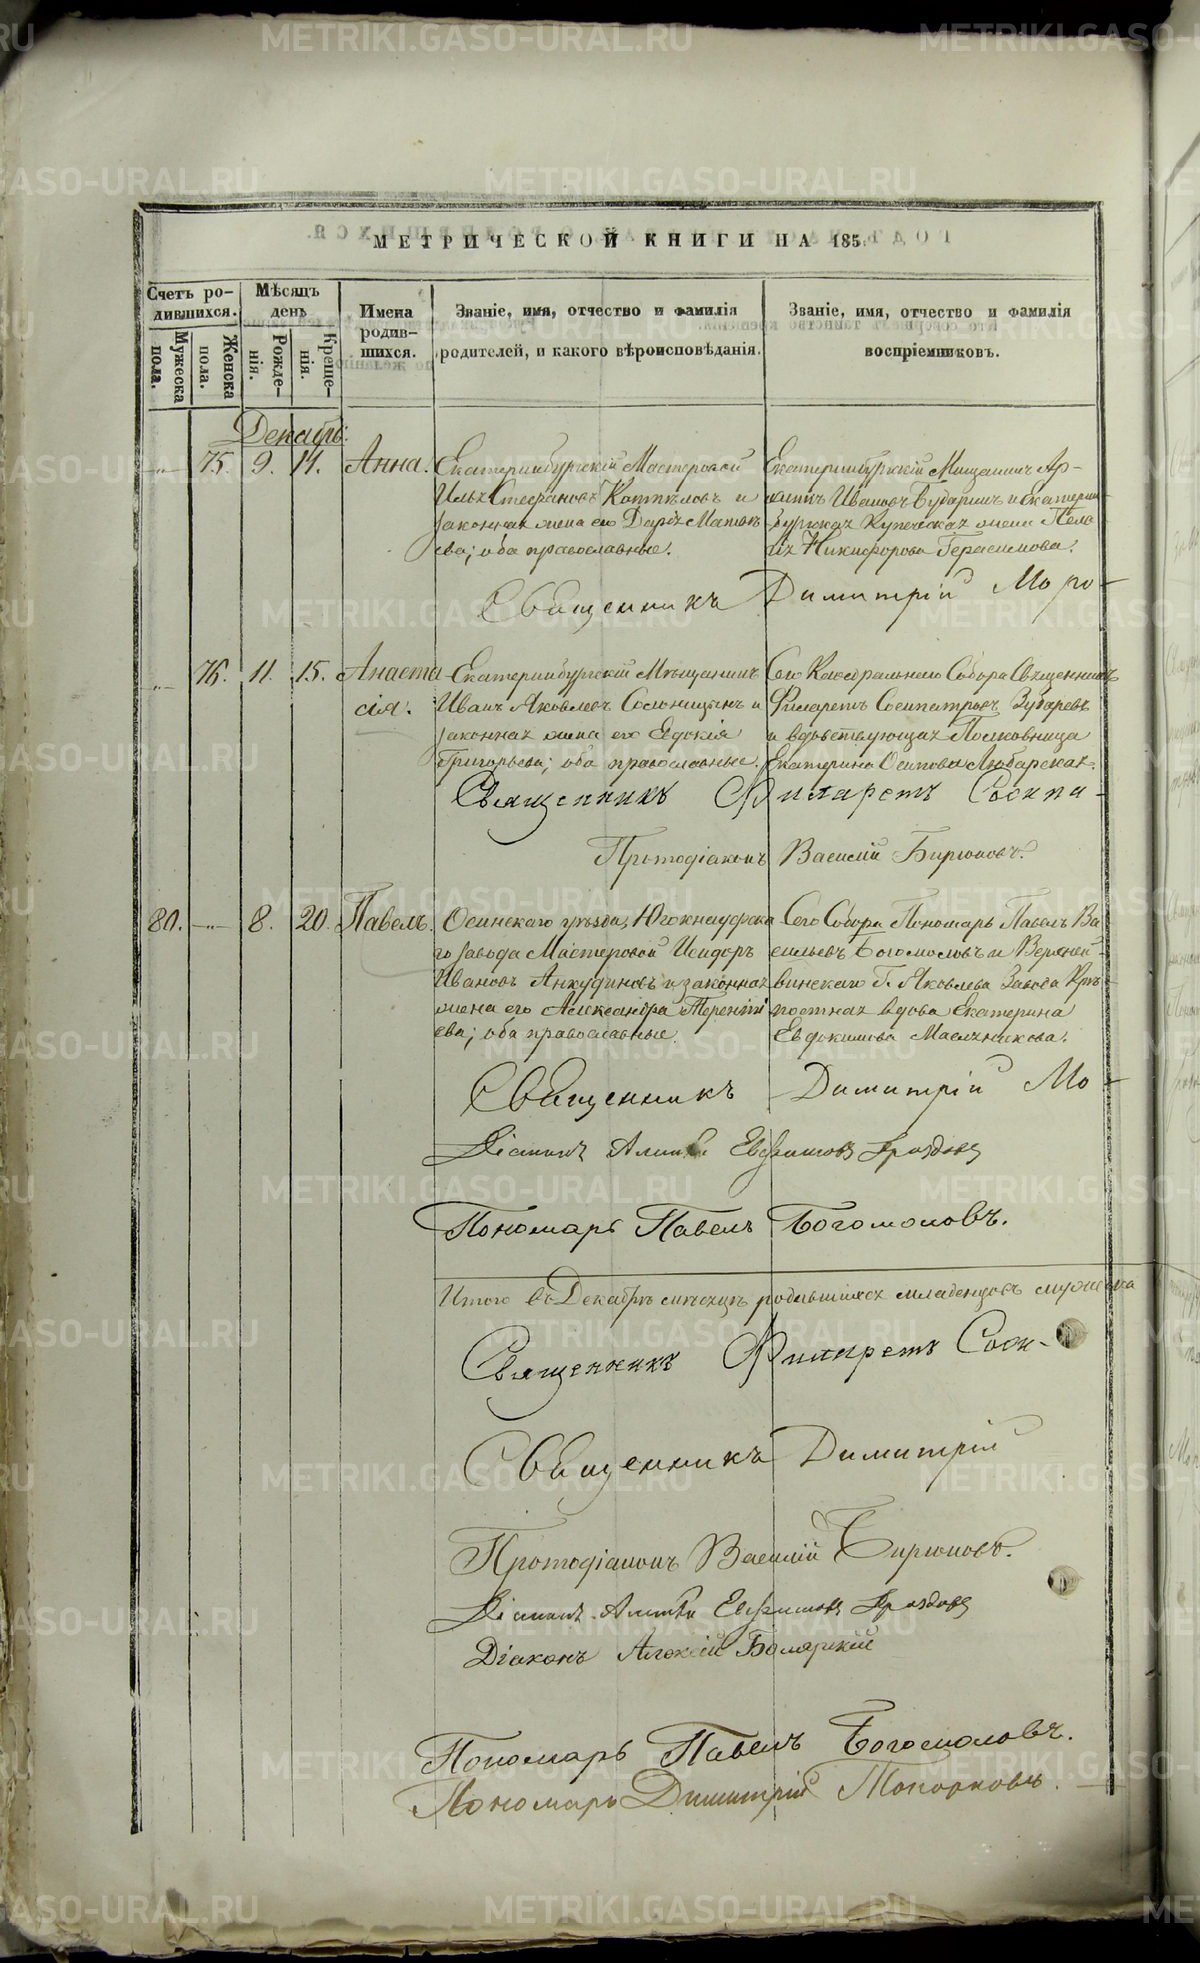 МЕТРИЧЕСКОЙ КНИГИ НА 185
Счетъ ро-
дившихся.
Мужеска пола.
Женска пола.
Мѣсяцъ
день
Рожде-
нія.
Креще-
нія.
Имена
родив-
шихся.
Званіе, имя, отчество и фамилія
родителей, и какого вѣроисповѣданія.
Званіе, имя, отчество и фамилія
воспріемниковъ.
Декабрь:
75. 9. 14. Анна.
Екатеринбургскій Мастеровой
Илья Стефановъ Коттѣловъ и
законная жена его Дарья Матвѣ
ева; оба православные.
Екатеринбургскій Мещанинъ Ар-
Ивановъ Бударинъ и Екатерин
бургская Купеческая жена Пела
гія Никифорова Герасимова.
Священникъ Димитрій Моро-
76. 11. 15. Анаста
сія.
Екатеринбургскій Мѣщанинъ
Иванъ Яковлевъ Солоницынъ и
законная жена его Евдокія
Григорьева; оба православные.
Сего Каѳедральнаго Собора Священникъ
Филаретъ Сосипатровъ Зубаревъ
и вдовствующая Полковница
Екатерина Осипова Любарская.
Священникъ Филаретъ Сосипа-
Протодіаконъ Василій Бирюковъ.
80. 8. 20. Павелъ.
Осинскаго уѣзда, Югокнауфска
го завода Мастеровой Исидоръ
Ивановъ Анкудиновъ и законная
жена его Александра Теренті
ева; оба православные.
Сего Собора Пономарь Павелъ Ва
сильевъ Богомоловъ и Верхней-
винскаго Г. Яковлева Завода Крѣ
постная вдова Екатерина
Евдокимова Масленникова.
Священникъ Димитрій Мо-
Діаконъ Евфимовъ Дроздовъ
Пономарь Павелъ Богомоловъ.
Итого въ Декабрѣ мѣсяцѣ родившихся младенцовъ мужеска
Священникъ Филаретъ Соси-
Священникъ Димитрій
Протодіаконъ Василій Бирюковъ.
Діаконъ Евфимовъ Дроздовъ
Діаконъ Алексій Боярскій
Пономарь Павелъ Богомоловъ.
Пономарь Димитрій Топорковъ.
METRIKI.GASO-URAL.RU